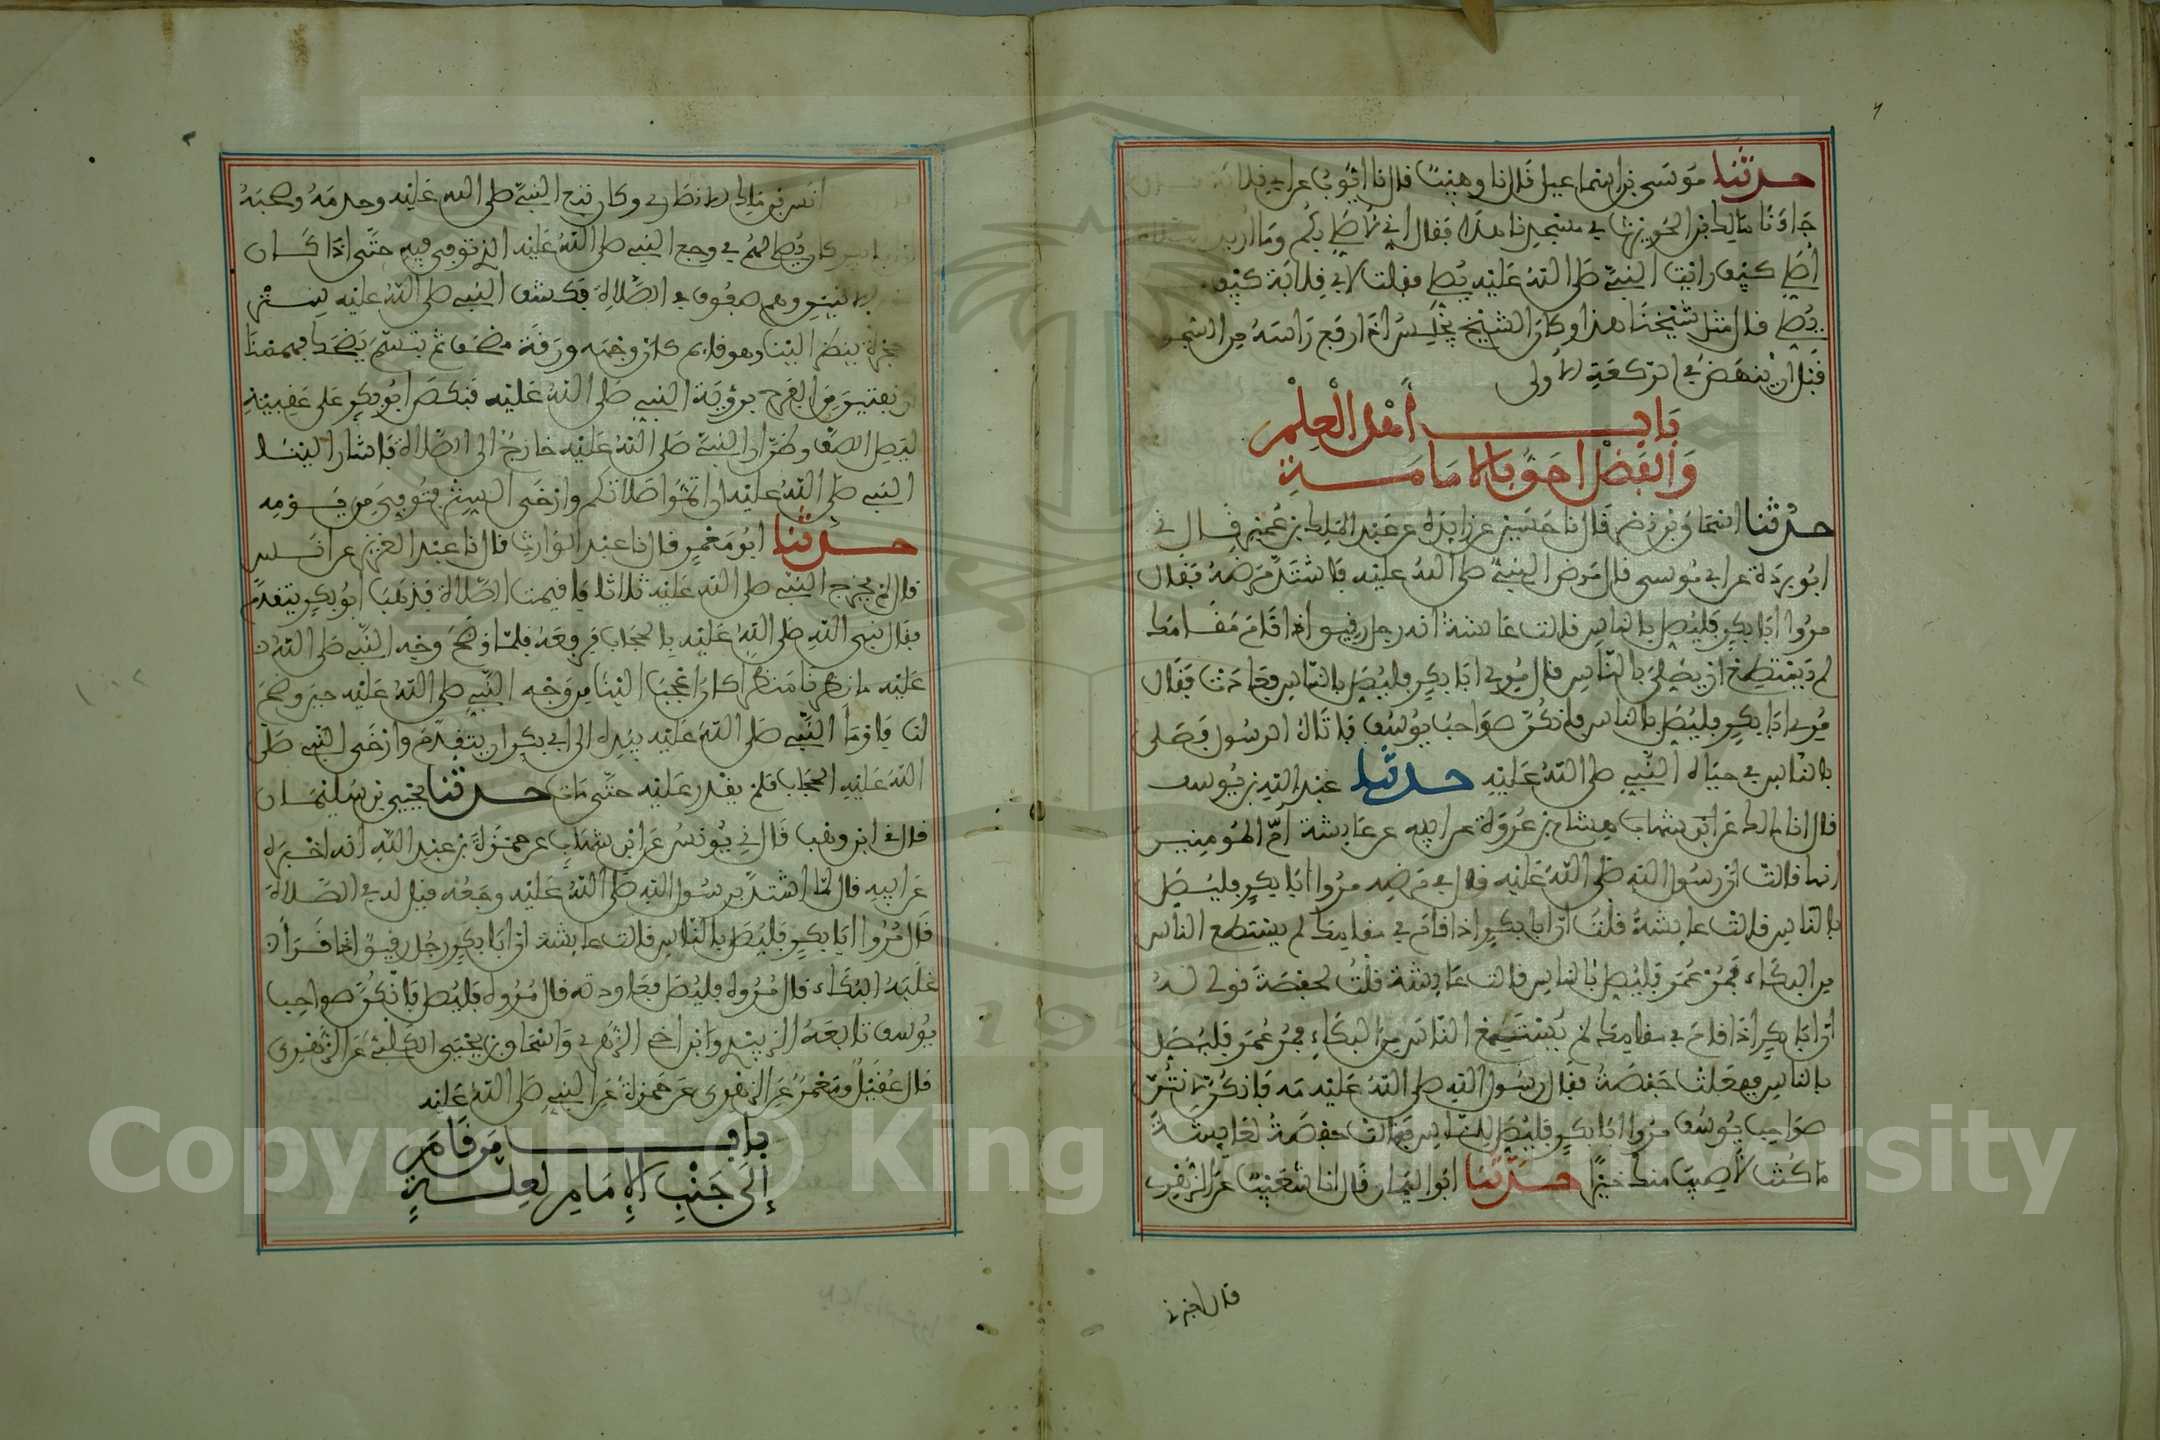 حدثنا موسى بن اسماعيل قال نا وهيب قال نا ايوب عن ابي قلابة قال
جاءنا مالك بن الحويرث في مسجدنا هذا فقال اني لاصلي بكم وما اريد الصلاة
اصلي كيف رايت النبي صلى الله عليه يصلي فقلت لابي قلابة كيف كان
يصلي قال مثل شيخنا هذا وكان الشيخ يجلس اذا رفع راسه من السجود
قبل ان ينهض في الركعة الاولى
باب اهل العلم
والفضل احق بالامامة
حدثنا اسحاق بن نصر قال نا حسين عن زايدة عن عبد الملك بن عمير قال ني
ابو بردة عن ابي موسى قال مرض النبي صلى الله عليه فاشتد مرضه فقال
مروا ابا بكر فليصل بالناس قالت عائشة انه رجل رقيق اذا قام مقامك
لم يستطع ان يصلي بالناس قال مري ابا بكر فليصل بالناس فعادت فقال
مري ابا بكر فليصل بالناس فانكن صواحب يوسف فاتاه الرسول فصلى
بالناس في حياة النبي صلى الله عليه حدثنا عبد الله بن يوسف
قال انا مالك عن ابن شهاب هشام بن عروة عن ابيه عن عايشة ام المومنين
انها قالت ان رسول الله صلى الله عليه قال في مرضه مروا ابا بكر فليصل
بالناس قالت عايشة قلت ان ابا بكر اذا قام في مقامك لم يستطع الناس
من البكاء فمر عمر فليصل بالناس قالت عايشة قلت لحفصة قولي له
ان ابا بكر اذا قام في مقامك لم يستطيع الناس من البكاء فمر عمر فليصل
بالناس ففعلت حفصة فقال رسول الله صلى الله عليه مه فانكن لانتن
صواحب يوسف مروا ابا بكر فليصل للناس فقالت حفصة لعايشة
ما كنت لاصيب منك خيرا حدثنا ابو اليمان قال انا شعيب عن الزهري
قال اخبرني
انس بن مالك الانصاري وكان تبع النبي صلى الله عليه وخدمه وصحبه
ان ابا بكر كان يصلي لهم في وجع النبي صلى الله عليه الذي توفي فيه حتى اذا كان
يوم الاثنين وهم صفوف في الصلاة فكشف النبي صلى الله عليه ستر
الحجرة ينظر الينا وهو قايم كان وجهه ورقة مصحف ثم تبسم يضحك فهممنا
ان نفتتن من الفرح برؤية النبي صلى الله عليه فنكص ابو بكر على عقبيه
ليصل الصف وظن ان النبي صلى الله عليه خارج الى الصلاة فاشار الينا
النبي صلى الله عليه ان اتموا صلاتكم وارخى الستر فتوفي من يومه
حدثنا ابو معمر قال نا عبد الوارث قال نا عبد العزيز عن انس
قال لم يخرج النبي صلى الله عليه ثلاثا فاقيمت الصلاة فذهب ابو بكر يتقدم
فقال نبي الله صلى الله عليه بالحجاب فرفعه فلما وضح وجه النبي صلى الله
عليه ما نظرنا منظرا كان اعجب الينا من وجه النبي صلى الله عليه حين وضح
لنا فاومأ النبي صلى الله عليه بيده الى ابي بكر ان يتقدم وارخى النبي صلى
الله عليه الحجاب فلم يقدر عليه حتى مات حدثنا يحيى بن سليمان
قال ني ابن وهب قال ني يونس عن ابن شهاب عن حمزة بن عبد الله انه اخبره
عن ابيه قال لما اشتد برسول الله صلى الله عليه وجعه قيل له في الصلاة
قال مروا ابا بكر فليصل بالناس قالت عايشة ان ابا بكر رجل رقيق اذا قرا
غلبه البكاء قال مروه فليصل فعاودته قال مروه فليصل فانكن صواحب
يوسف تابعه الزبيدي وابن اخي الزهري واسحاق بن يحيى الكلبي عن الزهري
قال عقيل ومعمر عن الزهري عن حمزة عن النبي صلى الله عليه
باب من قام
إلى جنب الإمام لعلة